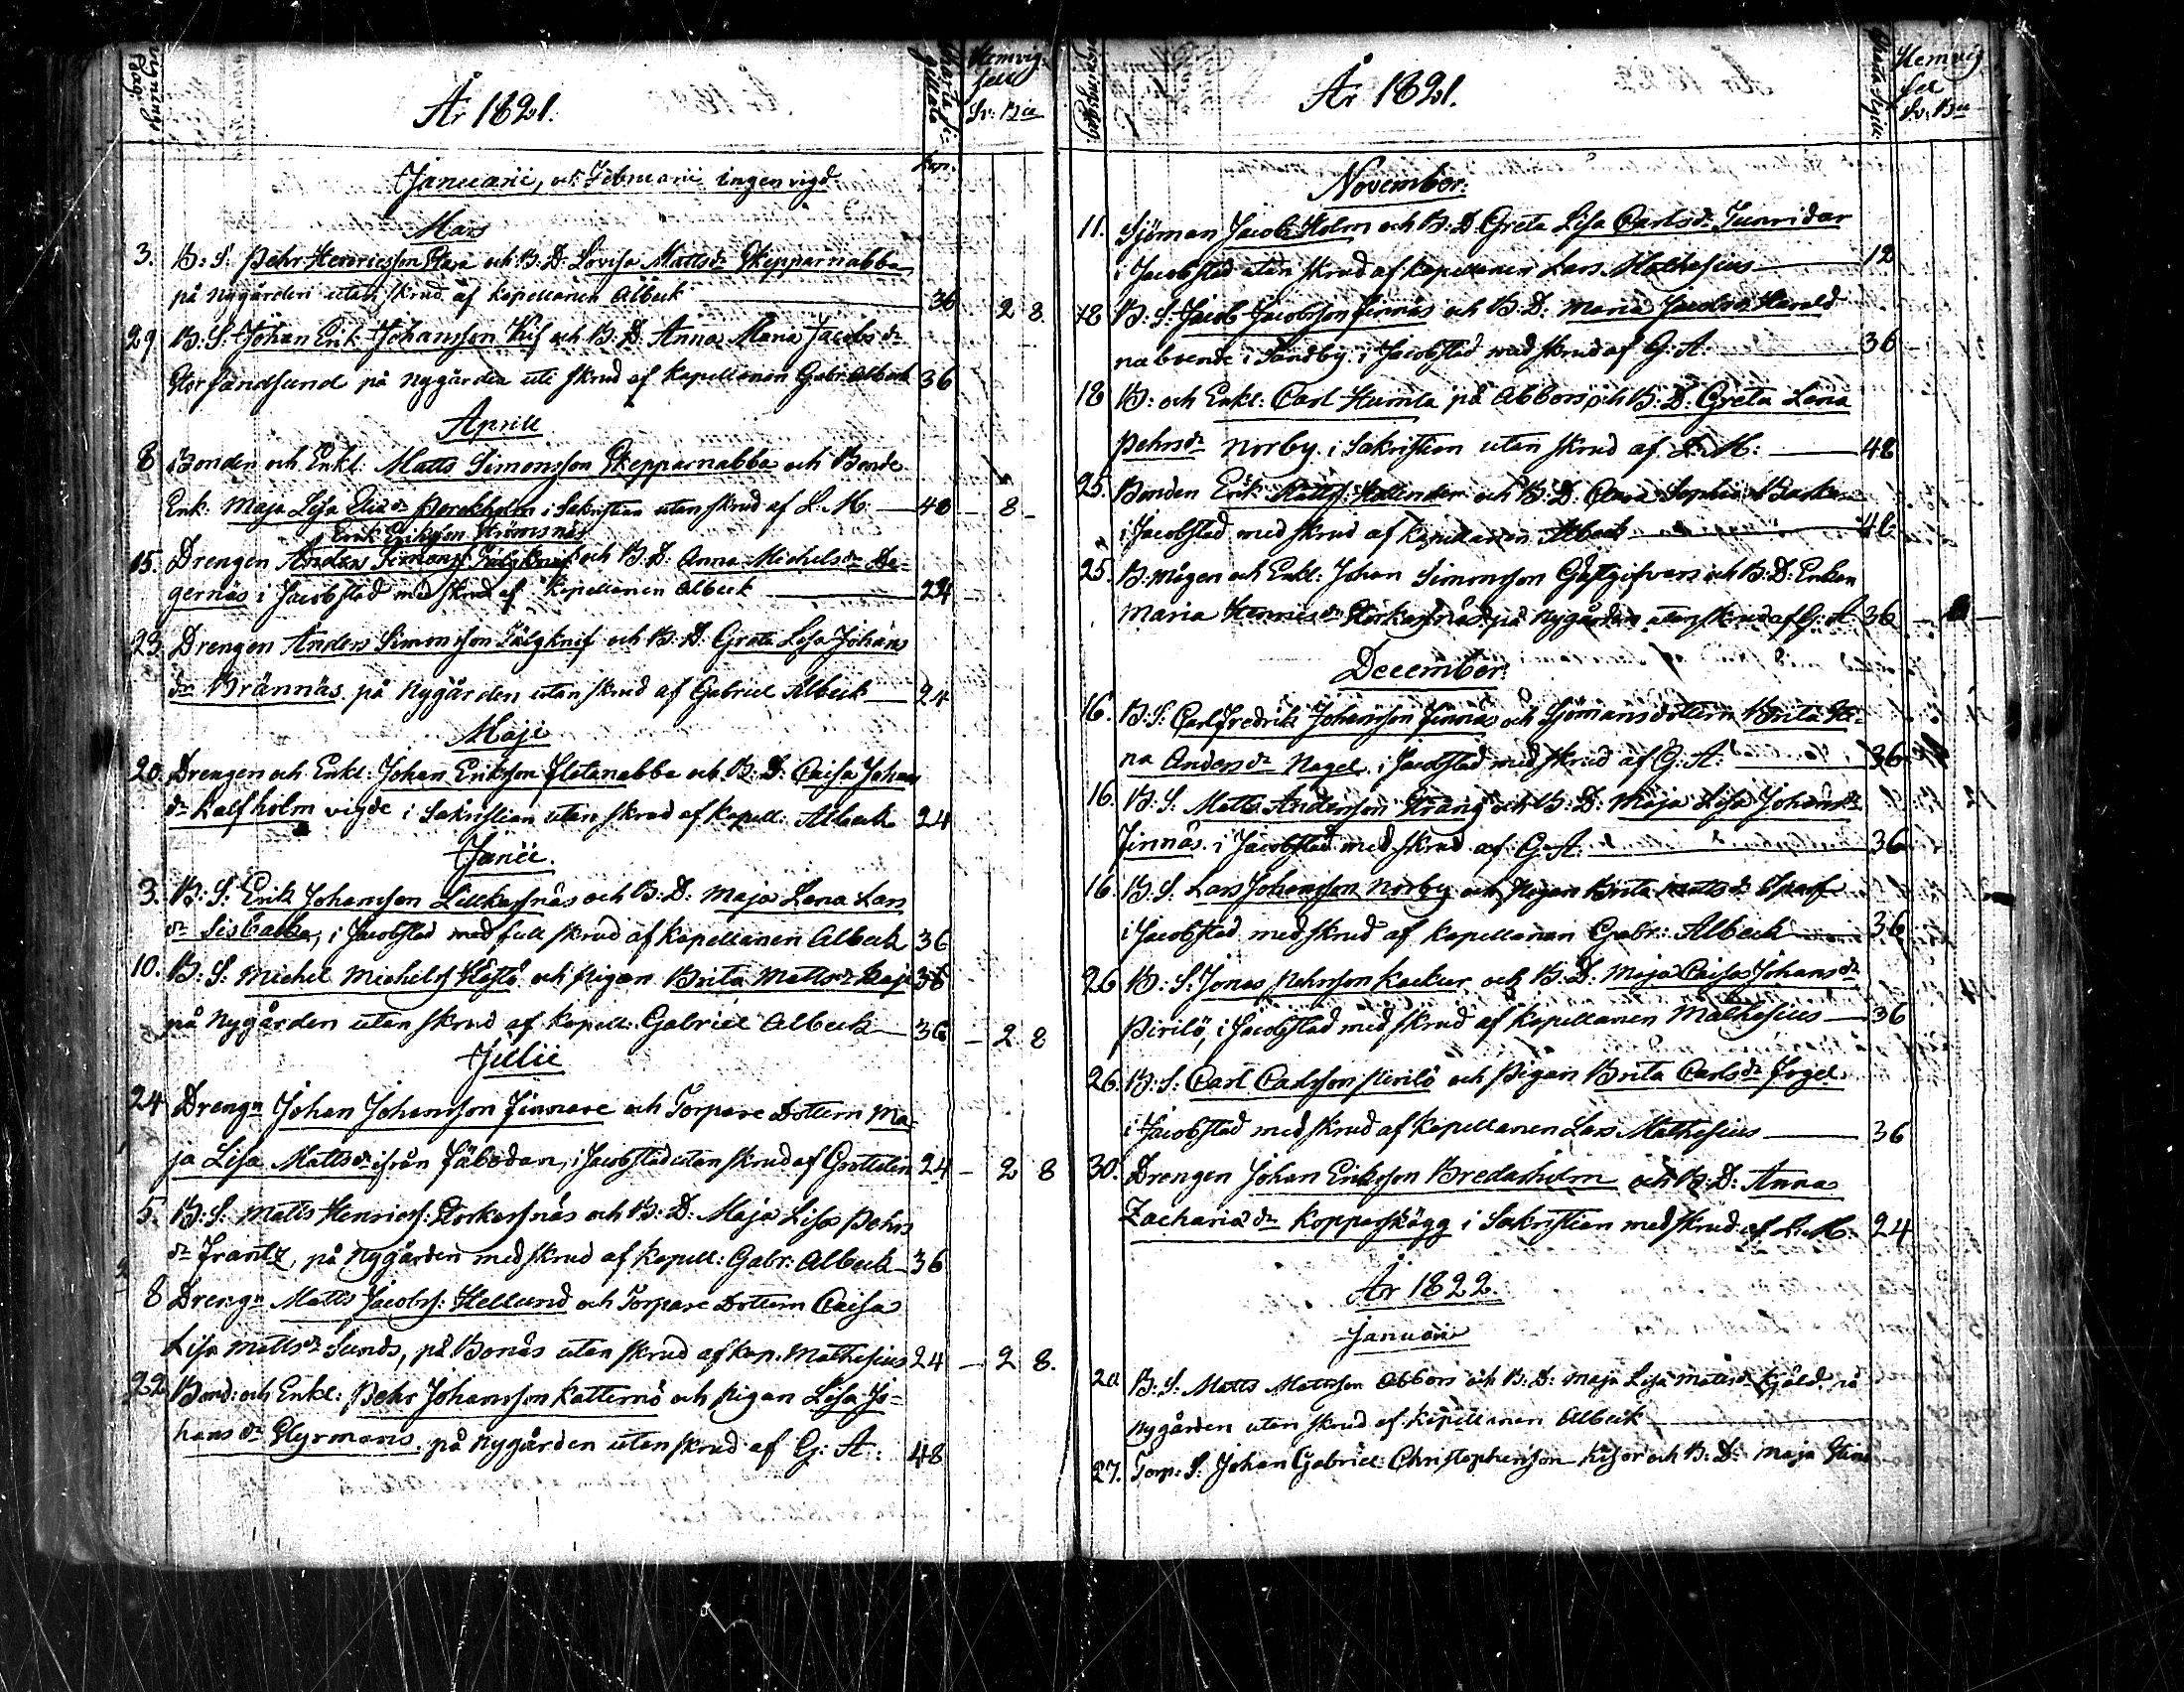 År 1821.
Hemvig:
sel
Sv: Bco
Januarii, och Februarii ingen vigd
Kop:
Mars
3. B: S: Pehr Henricsson Plasa och B: D: Lovisa Mattsdr Skepparnabba
på Nygården utan skrud af Kapellanen Albeck 36 2 8
29 B: S: Johan Erik Johansson Kuf och B: D: Anna Maria Jacobsdr
Storsandsund på Nygården uti skrud af Kapellanen Gabr: Albeck 36
Aprill
8 Bonden och Enkl: Matts Simonsson Skepparnabba och Bonde
Enk: Maja Lisa Eliædr Porckholm i Sakristian utan skrud af L. M: 48 – 8 –
Erik Eriksson Strömsnäs
15. Drengen Anders Simonss Tälgknif och B: D: Anna Michelsdr De-
gernäs i Jacobstad med skrud af Kapellanen Albeck 24
23. Drengen Anders Simonsson Tälgknif och B: D: Greta Lisa Johans
dr Brännäs på Nygården utan skrud af Gabriel Albeck 24
Maji
20. Drengen och Enkl: Johan Eriksson Slotanabba och B: D: Caisa Johans
dr Kalfholm vigde i Sakristian utan skrud af Kapell: Albeck 24
Junii.
3. B: S: Erik Johansson Lillkassnäs och B: D: Maja Lena Lars
dr Sisbacka, i Jacobstad med full skrud af Kapellanen Albeck 36
10. B: S: Michel Michelss Hästö och Pigan Brita Mattsdr 36
på Nygården utan skrud af Kapell: Gabriel Albeck 36 – 2 8
Julii
24 Drengn Johan Johansson Finnare och Torpare Dottern Ma-
ja Lisa Mattsdr ifrån Fäbodan, i Jacobstad utan skrud af 24 – 2 8
5. B: S: Matts Henricss: Storkassnäs och B: D: Maja Lisa Pehrs
dr Frantz, på Nygården med skrud af Kapell: Gabr: Albeck 36
8 Drengn Matts Jacobss: Hellund och Torpare Dottern Caisa
Lisa Mattsdr Sunds, på Bonäs utan skrud af Kap. Mathesius 24 – 2 8.
22 Bond: och Enkl: Pehr Johansson Katternö och Pigan Lisa Jo-
hansdr Styrmans på Nygården utan skrud af G: A: 48
År 1821.
Hemvig
sel
Sv: Bco
November:
11. Sjöman Jacob Holm och B: D: Greta Lisa Carlsdr Sunnidar
i Jacobstad utan skrud af Kapellanen Lars Mathesius 12
18 B: S: Jacob Jacobsson Finnäs och B: D: Maria Jacobsdr Harald
na boende i Sandby i Jacobstad med skrud af G: A: 36
18 B: och Enkl: Carl Humla på Abbors och B: D: Greta Lena
Pehrsdr Norby i Sakristian utan skrud af L: M: 48
25. Bonden Erik Mattss: Hollender och B: D: Clara Sophia
i Jacobstad med skrud af Kapellanen Albeck 48
25. B: Mågen och Enkl: Johan Simonsson Gästgifvars och B: D: Enkan
Maria Henricsdr Storkassnäs på Nygården utan skrud af G: A: 36
December:
16. B: S: Carl Fredrik Johansson Finnäs och Sjömansdottern Brita Ste-
na Andersdr Nagel i Jacobstad med skrud af G: A: 36
16. B: S: Matts Andersson Sträng och B: D: Maja Lisa Johansdr
Finnäs i Jacobstad med skrud af G. A: 36
16. B: S: Lars Johansson Norby och Pigan Brita Mattsdr Sparf
i Jacobstad med skrud af Kapellanen Gabr: Albeck 36
26 B: S: Jonas Pehrsson Kackur och B: D: Maja Caisa Johansdr
Pirilö, i Jacobstad med skrud af Kapellanen Mathesius 36
26. B: S: Carl Carlsson Pirilö och Pigan Brita Carlsdr Fogel
i Jacobstad med skrud af Kapellanen Lars Mathesius 36
30. Drengen Johan Eriksson Bredarholm och B: D: Anna
Zachariædr Kopparskägg i Sakristian med skrud af L: M: 24
År 1822.
Januarii
20 B: S: Matts Mattsson Abbors och B: D: Maja Lisa Mattsdr Sjöld på
Nygården utan skrud af Kapellanen Albeck
27. Torp: S: Johan Gabriel Christophersson Kisor och B: D: Maja Stina